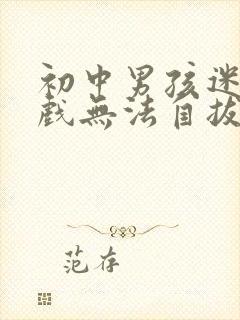 初中男孩迷
戲無法自拔
范存